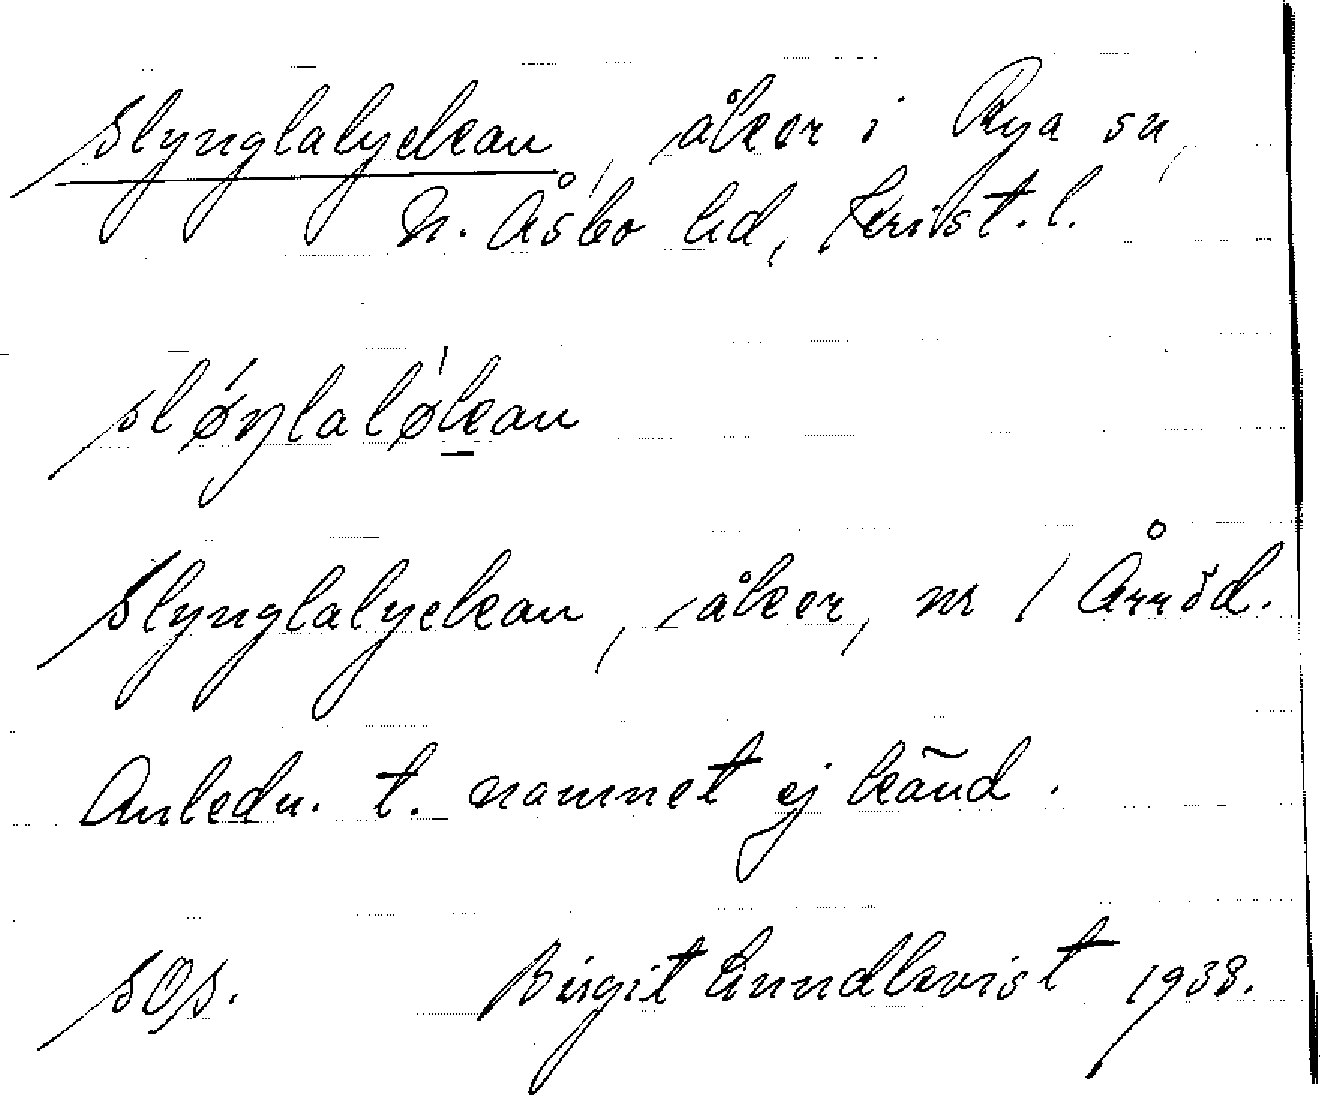 Slynglalyckan, åker i Rya sn,
N. Åsbo hd, Krist. l.
sløŋlaløkan
Slynglalyckan, åker, nr 1 Årröd.
Anledn. t. namnet ej känd.
SOS. Birgit Lundkvist 1938.